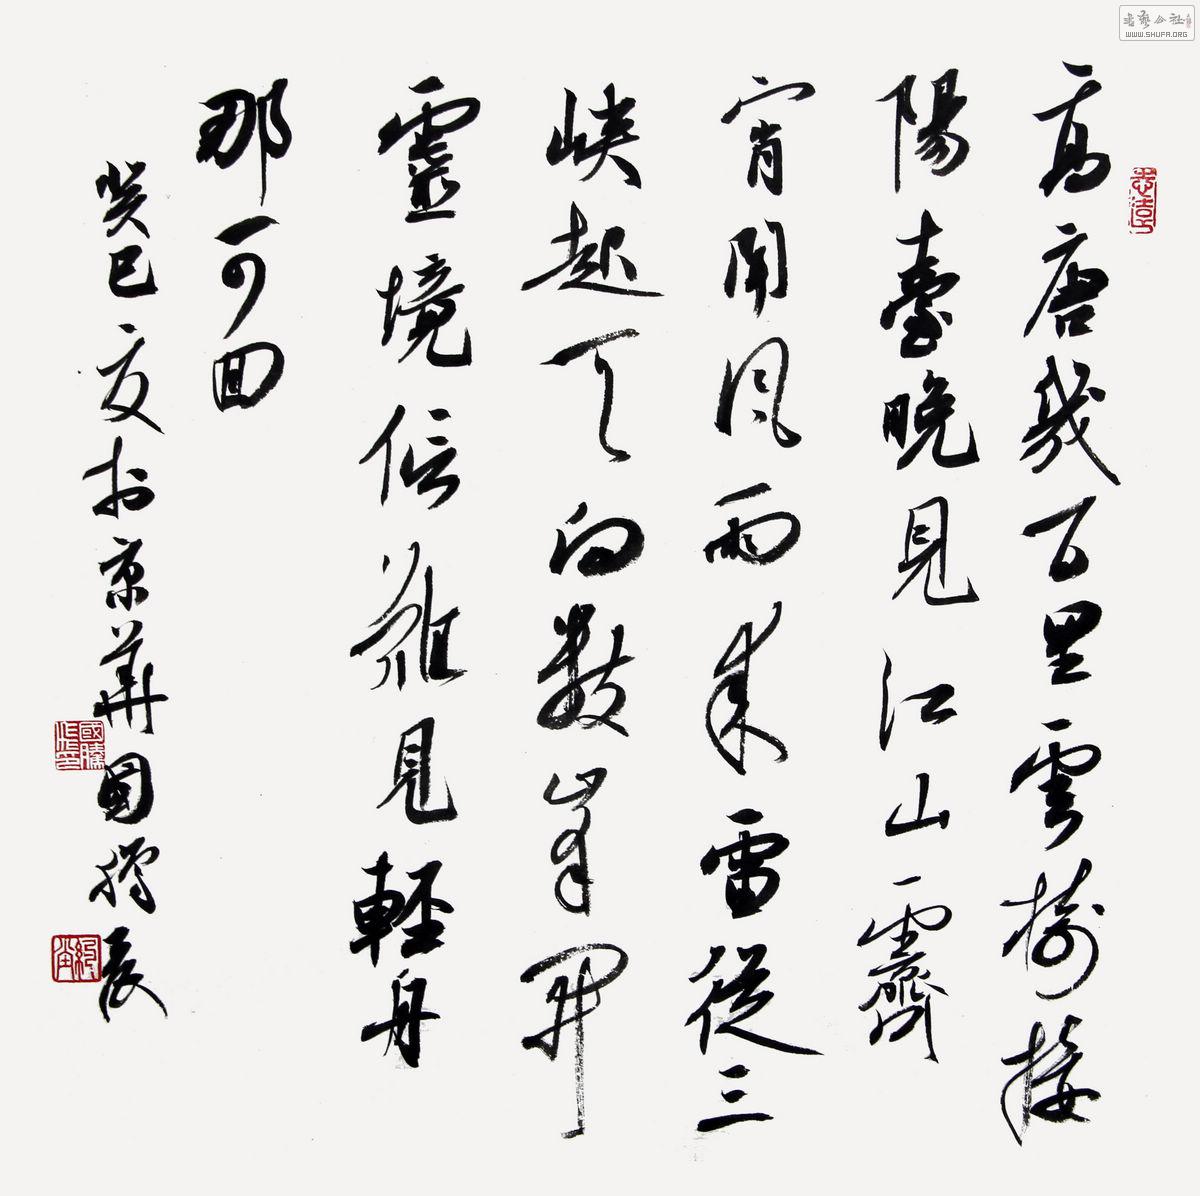 高唐几百里云树接
陽臺晚見江山霽
宵聞風雨來雷從三
峽起天向數峯開
靈境信難見輕舟
那可回
癸巳夏於京華國勝書
志遠
國勝
WWW.SHUFA.ORG